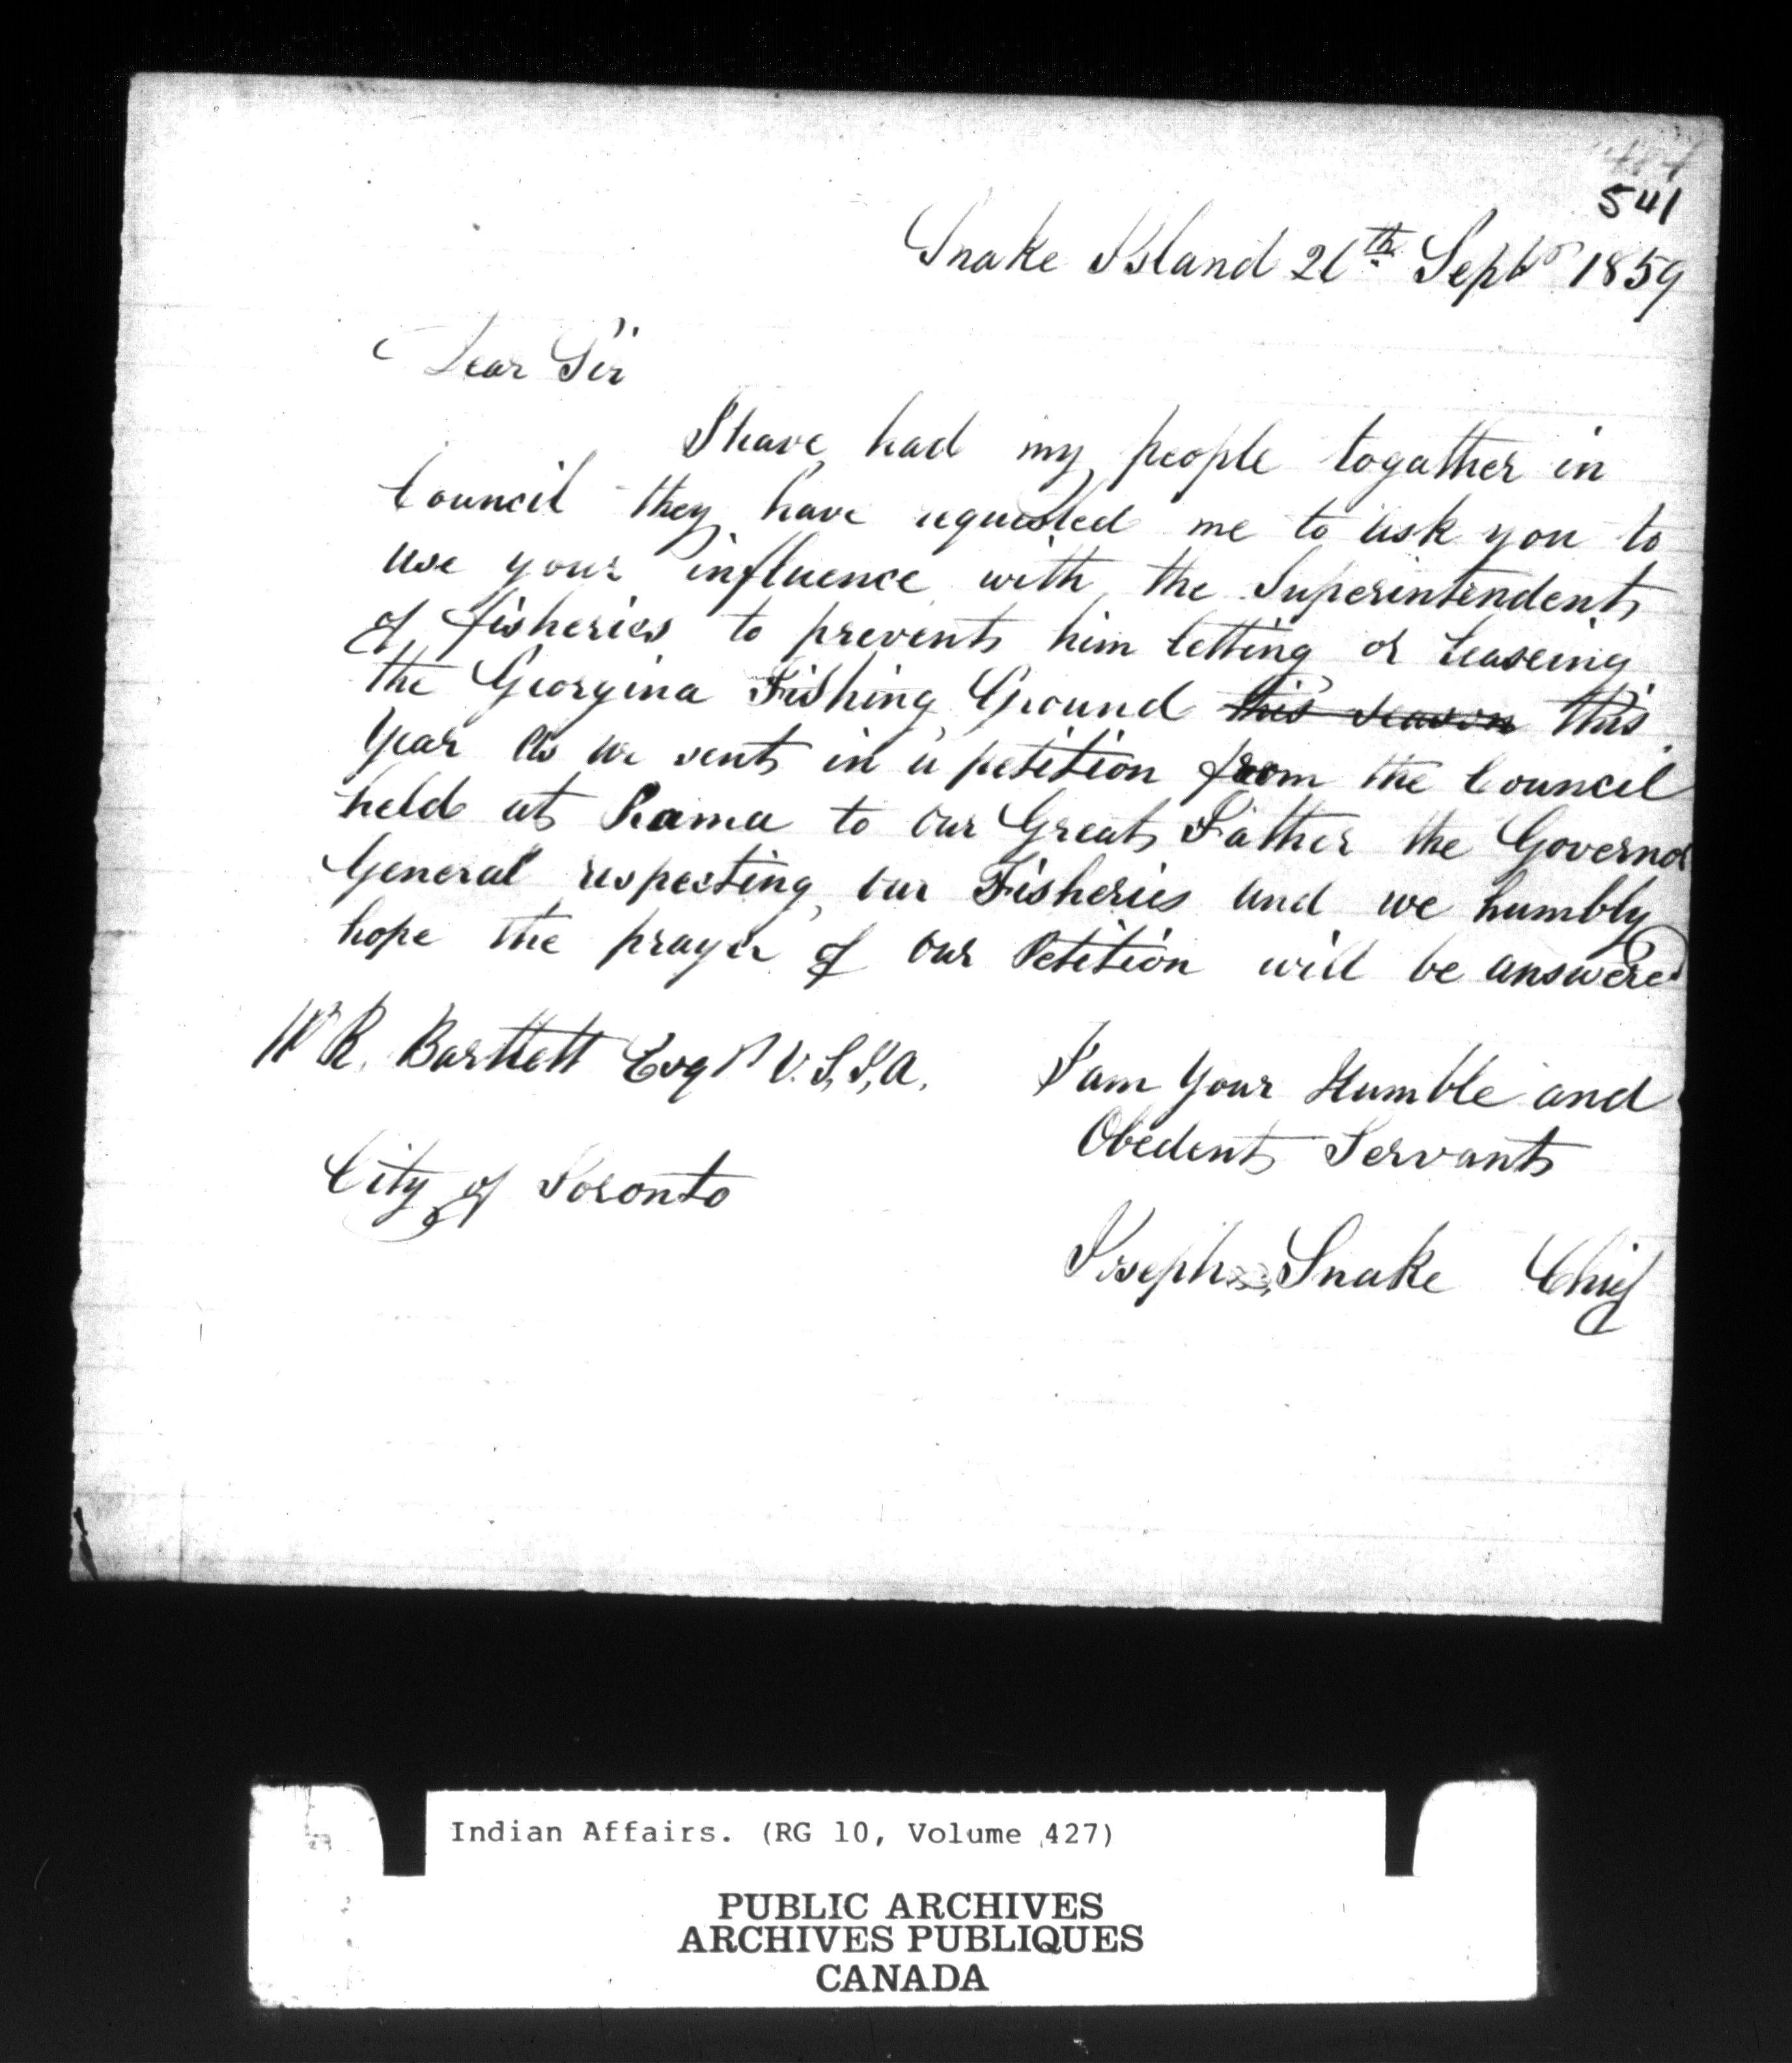 541
Snake Island 26th Septr 1859
Dear Sir
I have had my people togather in
Council they have requested me to ask you to
use your influence with the Superintendent
of fisheries to prevent him letting or Leaseing
the Georgina Fishing Ground this season this
Year As we sent in a petition from the Council
held at Rama to our Great Father the Governor
General respecting our Fisheries and we humbly
hope the prayer of our Petition will be answered
W R. Bartlett Esqr V.S,I,A.
I am Your Humble and
Obedent Servant
City of Toronto
Joseph Snake Chief
Indian Affairs. (RG 10, Volume 427)
PUBLIC ARCHIVES
ARCHIVES PUBLIQUES
CANADA